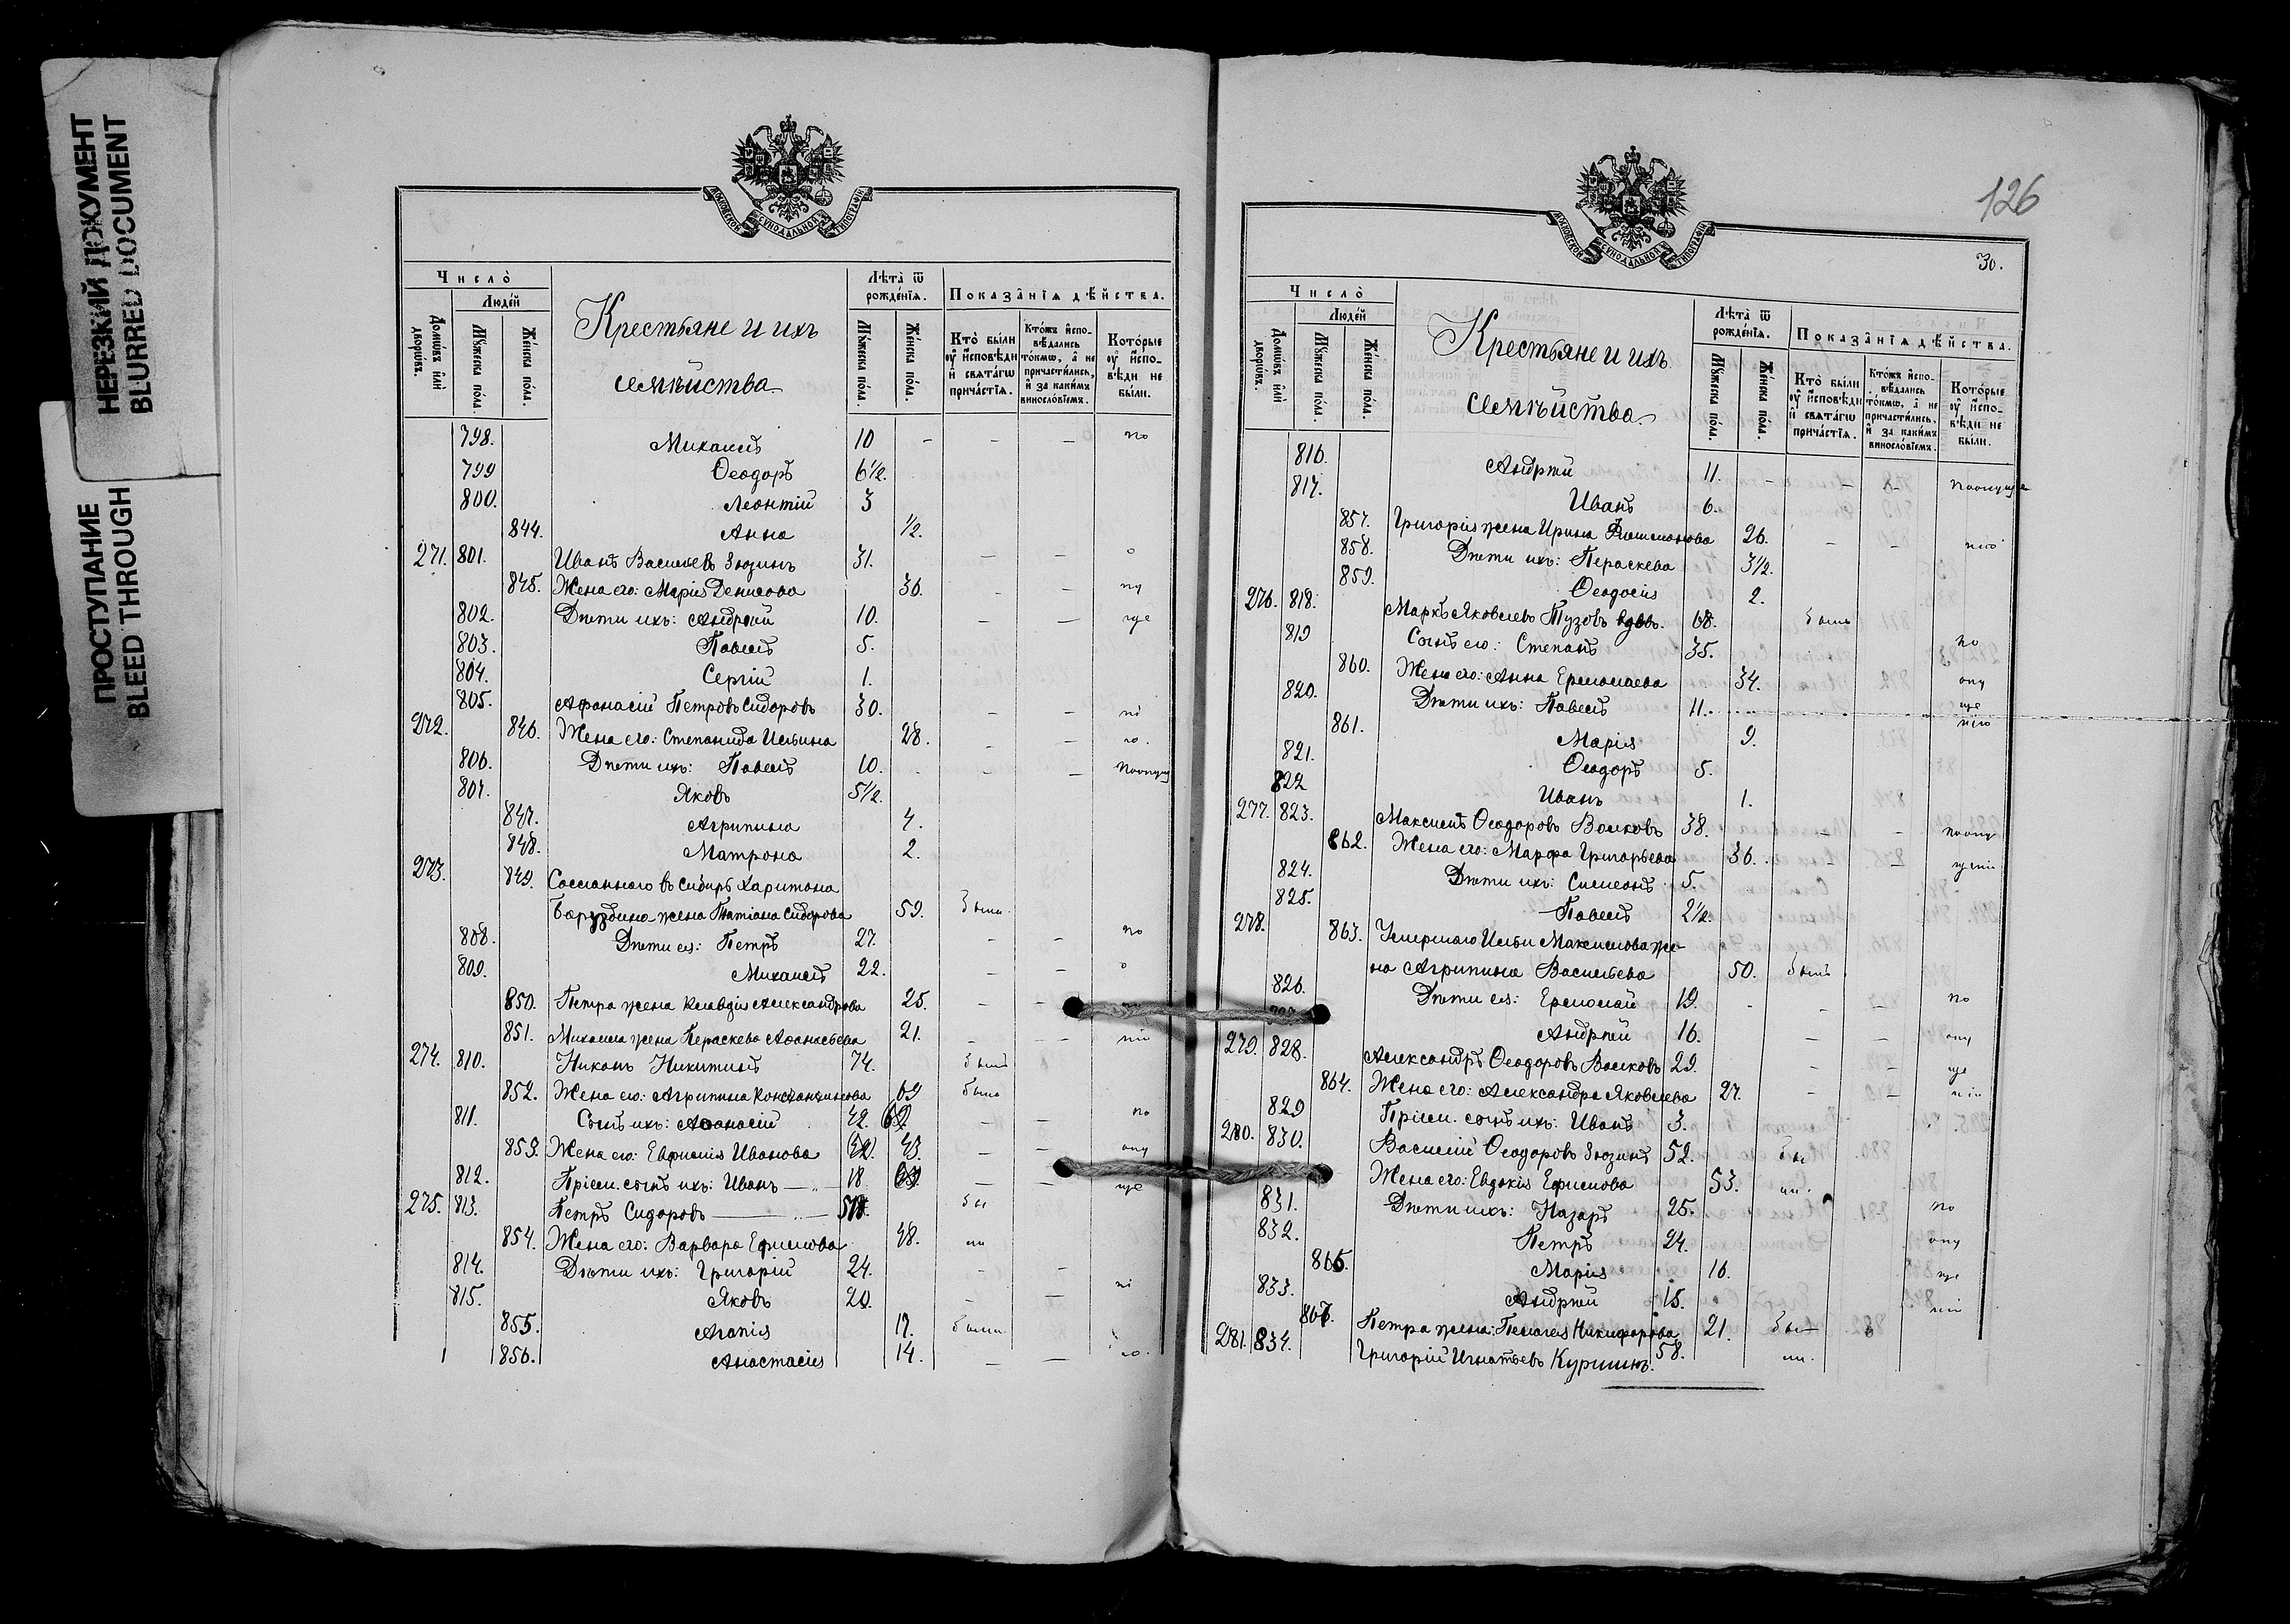 НЕРЕЗКИЙ ДОКУМЕНТ
BLURRED DOCUMENT
ПРОСТУПАНИЕ
BLEED THROUGH
МОСКОВСКОЙ СѴНОДАЛЬНОЙ ТИПОГРАФІИ
Число̀
Людей
Домѡвъ и҆лѝ дворѡвъ.
Мꙋ́жеска по́ла.
Же́нска по́ла.
Крестьяне и ихъ
семейства.
Лѣта̀ ѿ рожде́нїѧ.
Мꙋ́жеска по́ла.
Же́нска по́ла.
Показа̑нїѧ дѣ́йства.
Кто̀ бы́ли ᲂу҆ и҆сповѣ́ди и҆ свѧта́гѡ прича́стїѧ.
Кто́жъ и҆спо- вѣ́дались то́кмѡ, а҆ не причасти́лись, и҆ за каки́мъ винослѡ́вїемъ.
Кото́рые ᲂу҆ и҆спо- вѣ́ди не бы́ли.
798. Михаилъ 10 - - - по
799 Ѳеодоръ 6½.
800. Леонтій 3
844. Анна ½.
271. 801. Иванъ Васильевъ Зюзинъ 31. - - о
845. Жена его: Марія Денисова 30. - - пу
802. Дѣти ихъ: Андрей 10. - - ще
803. Павелъ 5.
804. Сергій 1.
805. Афанасій Петровъ Сидоровъ 30. - -
272. 846. Жена его: Степанида Ильина 28. - -
806. Дѣти ихъ: Павелъ 10. - - поопущ
807. Яковъ 5½.
847. Агрипина 4.
848. Матрона 2.
273. 849. Сосланнаго въ Сибирь Харитона
жена Татіана Сидорова 59. была.
808. Дѣти ея: Петръ 27. - - по
809. Михаилъ 22. - - о
850. Петра жена Клавдія Александрова 25. - -
851. Михаила жена Параскева Аѳанасьева 21. - - нію
274. 810. Никонъ Никитинъ 74. былъ
852. Жена его: Агрипина Константинова 69 была
811. Сынъ ихъ: Аѳанасій 42. - - по
853. Жена его: Евфимія Иванова 43. - - опу
812. Пріем. сынъ ихъ: Иванъ 18 - - ще
275. 813. Петръ Сидоровъ бы
854. Жена его: Варвара Ефимова 48. ли
814. Дѣти ихъ: Григорій 24. - -
815. Яковъ 20. - -
855. Агапія 17. были
856. Анастасія 14. - -
126
МОСКОВСКОЙ СѴНОДАЛЬНОЙ ТИПОГРАФІИ
30.
Число̀
Людей
Домѡвъ и҆лѝ дворѡвъ.
Мꙋ́жеска по́ла.
Же́нска по́ла.
Крестьяне и ихъ
семейства.
Лѣта̀ ѿ рожде́нїѧ.
Мꙋ́жеска по́ла.
Же́нска по́ла.
Показа̑нїѧ дѣ́йства.
Кто̀ бы́ли ᲂу҆ и҆сповѣ́ди и҆ свѧта́гѡ прича́стїѧ.
Кто́жъ и҆спо- вѣ́дались то́кмѡ, а҆ не причасти́лись, и҆ за каки́мъ винослѡ́вїемъ.
Кото́рые ᲂу҆ и҆спо- вѣ́ди не бы́ли.
816. Андрей 11. - - - поопуще
817. Иванъ 6.
857. Григорія жена Ирина 26. - - нію
858. Дѣти ихъ: Параскева 3½.
859. Ѳеодосія 2.
276. 818. Маркъ Яковлевъ Тузовъ вдовъ. 68. былъ
819 Сынъ его: Степанъ 35. по
860. Жена его: Анна Ермолаева 34. опу
820. Дѣти ихъ: Павелъ 11. ще
861. Марія 9. нію
821. Ѳеодоръ 5.
822 Иванъ 1.
277. 823. Максимъ Ѳеодоровъ Волковъ 38. - - поопу
862. Жена его: Марфа Григорьева 36. - - щенію
824. Дѣти ихъ: Симеонъ 5.
825. Павелъ 2½.
278. 863. Умершаго Ильи Максимова же-
на Агрипина Васильева 50. была
826. Дѣти ея: Ермолай 19. - - - по
Андрей 16. - - опу
279. 828. Александръ Ѳеодоровъ Волковъ 29. - - ще
864. Жена его: Александра Яковлева 27. - - нію
829 Пріем. сынъ ихъ: Иванъ 3.
280. 830. Василій Ѳеодоровъ Зюзинъ 52. бы
Жена его: Евдокія Ефимова 53. ли.
831. Дѣти ихъ: Назаръ 25. по
832. Петръ 24. опу
865. Марія 16. ще
833. Андрей 15. нію
Петра жена: Пелагея Никифорова 21. бы
281. 834. Григорій Игнатьевъ Куришинъ. 58. ли.